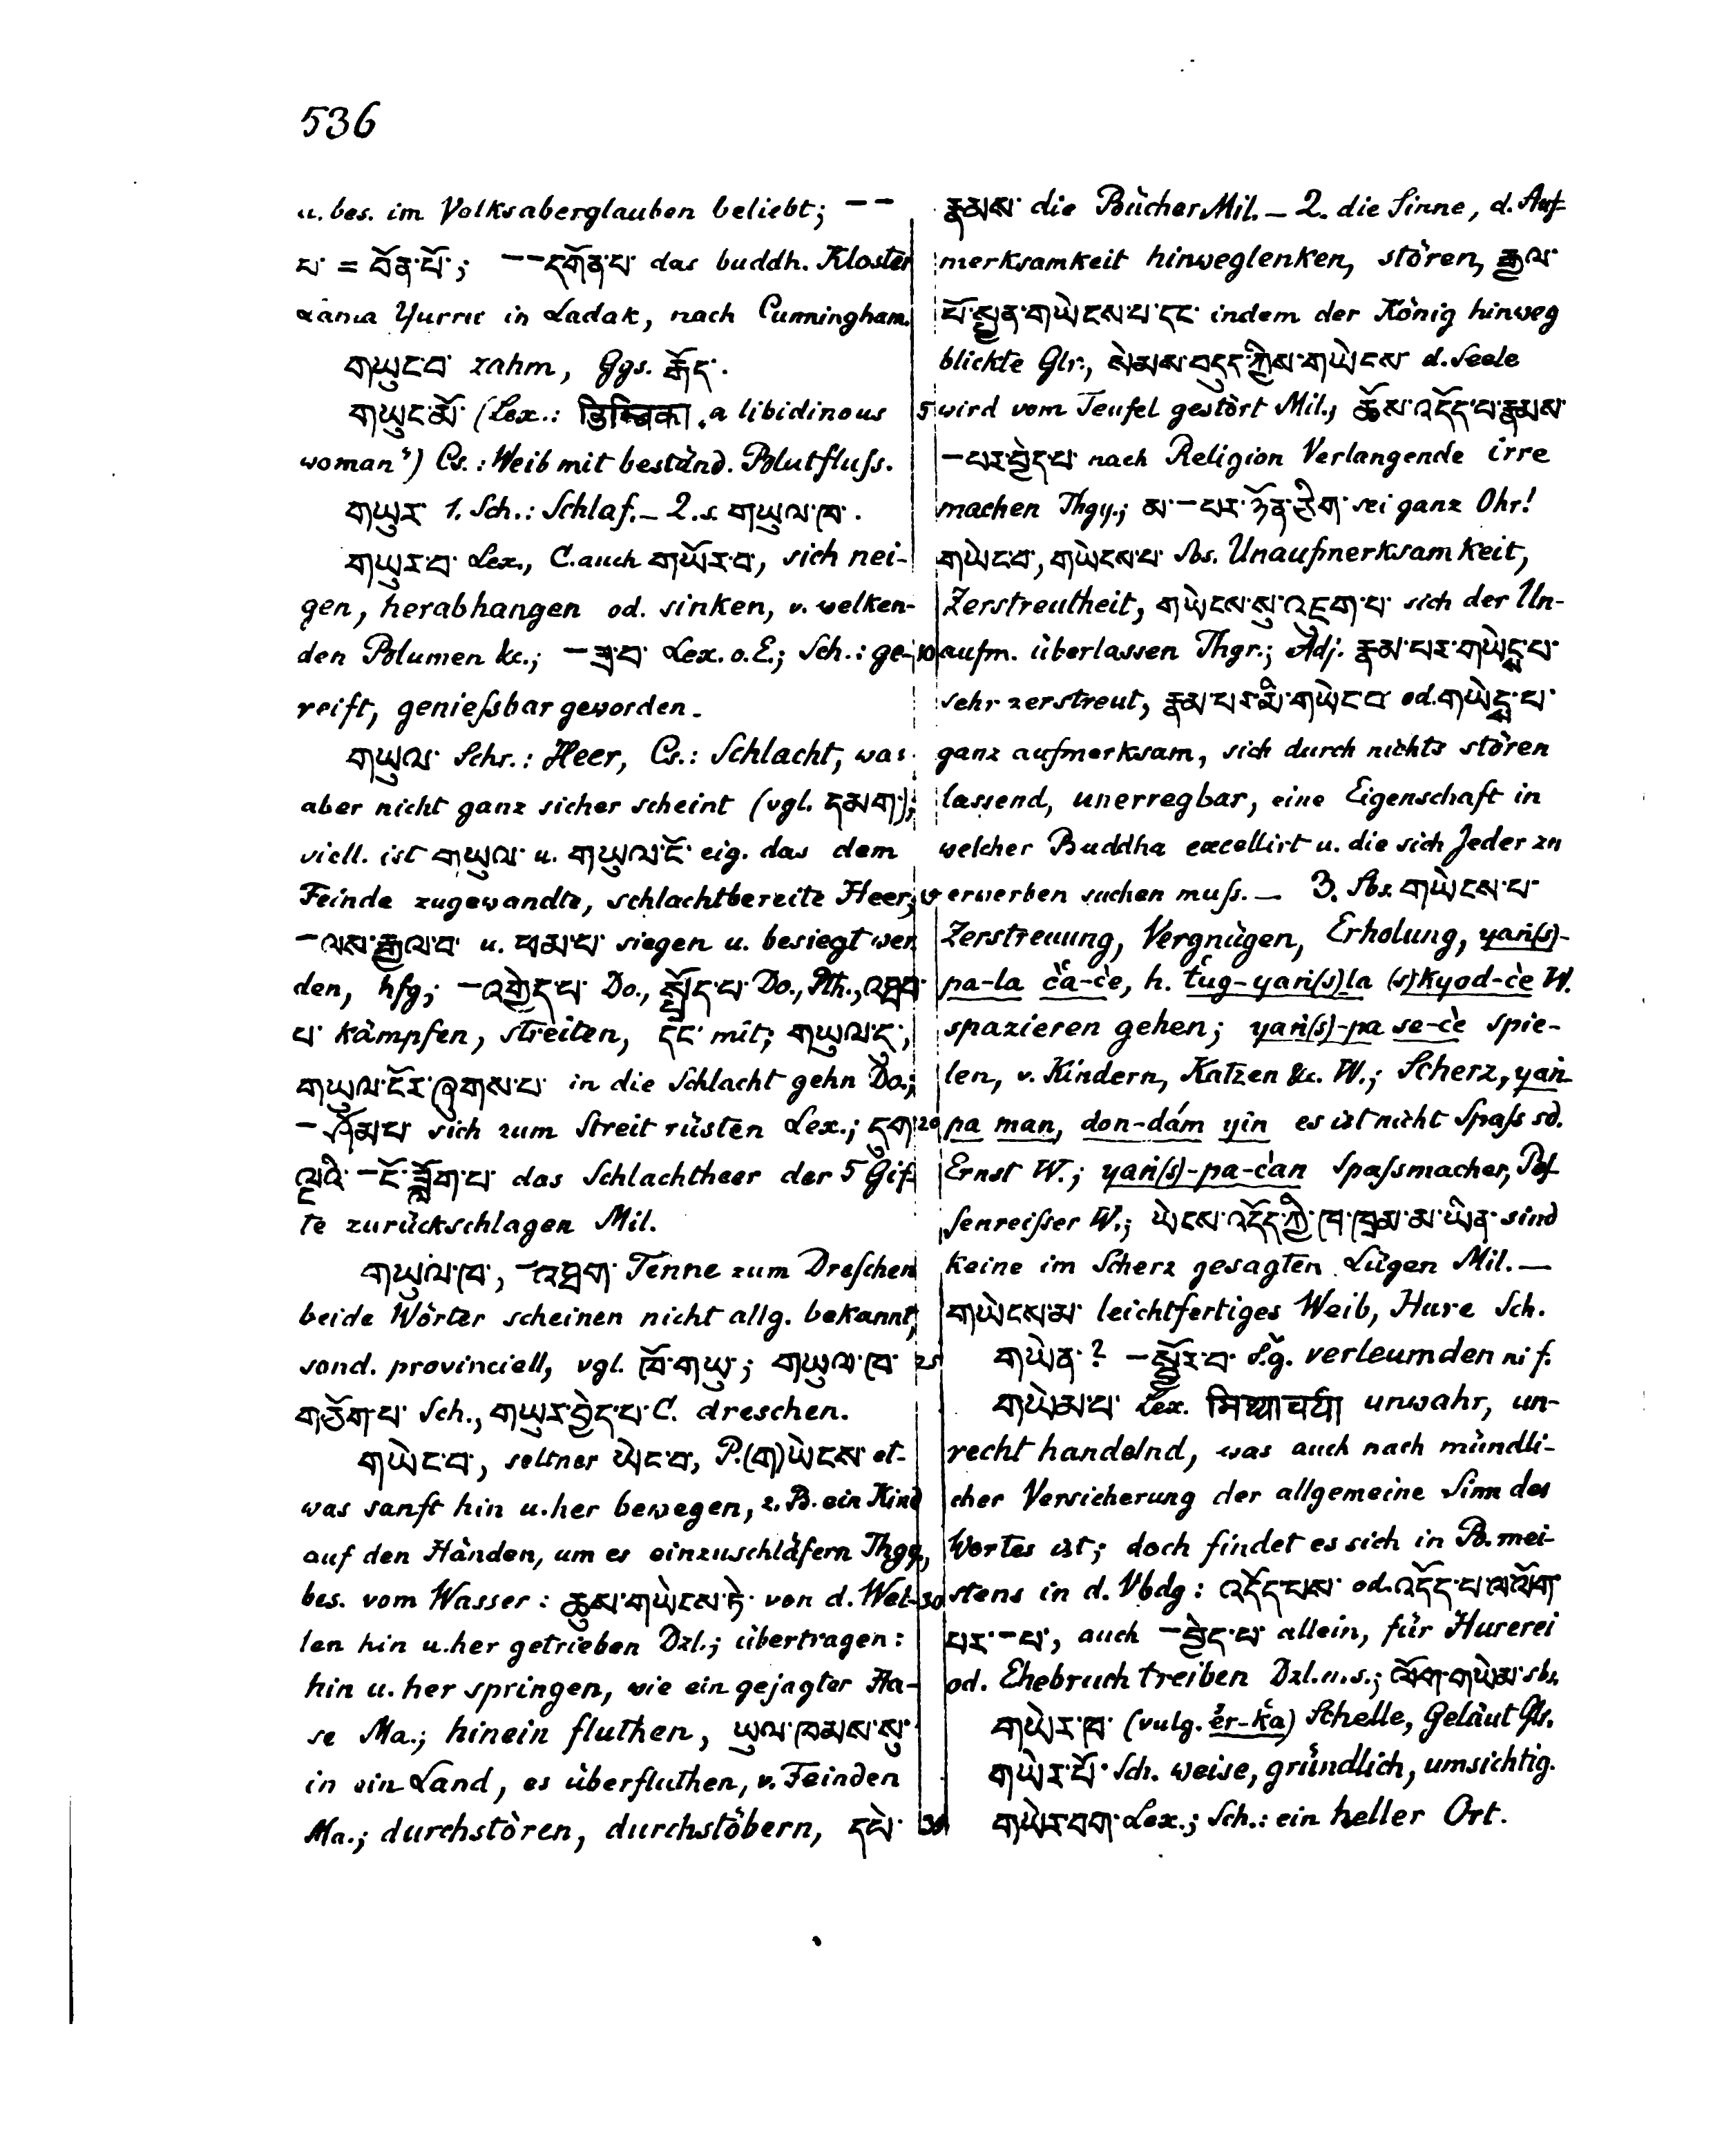 536
u. bes. im Volksaberglauben beliebt; – –
པ་ = བོན་པོ་; – –དགོན་པ་ das buddh. Kloster
Lama Yurru in Ladak, nach Cunningham.
གཡུང་བ་ zahm, Ggs. རྒོད་.
གཡུང་མོ་ (Lex.: a libidinous
woman") Cs.: Weib mit beständ. Blutfluſs.
གཡུར་ 1. Sch.: Schlaf. – 2. s. གཡུལ་ཁ་.
གཡུར་བ་ Lex., C. auch གཡོར་བ་, sich nei-
gen, herabhangen od. sinken, v. welken-
den Blumen &c.; –ཟ་བ་ Lex. o. E.; Sch.: ge-
reift, genieſsbar geworden.
གཡུལ་ Schr.: Heer, Cs.: Schlacht, was
aber nicht ganz sicher scheint (vgl. དམག་);
viell. ist གཡུལ་ u. གཡུལ་ངོ་ eig. das dem
Feinde zugewandte, schlachtbereite Heer;
–ལས་རྒྱལ་བ་ u. ཕམ་པ་ siegen u. besiegt wer
den, hfg; –འགྱེད་པ་ Do., སྤྲོད་པ་ Do., Pth., འཐབ་
པ་ kämpfen, streiten, དང་ mit; གཡུལ་དུ་,
གཡུལ་ངོར་ཞུགས་པ་ in die Schlacht gehn Do.;
–ཤོམ་པ་ sich zum Streit rüsten Lex.; དུག་
ལྔའི་ –ངོ་ཟློག་པ་ das Schlachtheer der 5 Gif-
te zurückschlagen Mil.
གཡུལ་ཁ་, –འཐག་ Tenne zum Dreschen
beide Wörter scheinen nicht allg. bekannt,
sond. provinciell, vgl. ཁོ་གཡུ་; གཡུལ་ཁ་
གཅོག་པ་ Sch., གཡུར་བྱེད་པ་ C. dreschen.
གཡེང་བ་, seltner ཡེང་བ་, P. (ག)ཡེངས་ et-
was sanft hin u. her bewegen, z. B. ein Kind
auf den Händen, um es einzuschläfern Thgy.,
bes. vom Wasser: ཆུས་གཡེངས་ཏེ་ von d. Wel-
len hin u. her getrieben Dzl.; übertragen:
hin u. her springen, wie ein gejagter Ha-
se Ma.; hinein fluthen, ཡུལ་ཁམས་སུ་
in ein Land, es überfluthen, v. Feinden
Ma.; durchstören, durchstöbern, དཔེ་
རྣམས་ die Bücher Mil. – 2. die Sinne, d. Auf-
merksamkeit hinweglenken, stören, རྒྱལ་
པོ་སྤྱན་གཡེངས་པ་དང་ indem der König hinweg
blickte Glr., སེམས་བདུད་ཀྱིས་གཡེངས་ d. Seele
5 wird vom Teufel gestört Mil.; ཆོས་འདོད་པ་རྣམས་
–པར་བྱེད་པ་ nach Religion Verlangende irre
machen Thgy.; མ་ –པར་ཉོན་ཅིག་ sei ganz Ohr!
གཡེང་བ་, གཡེངས་པ་ Sbs. Unaufmerksamkeit,
Zerstreutheit, གཡེངས་སུ་འཇུག་པ་ sich der Un-
10 aufm. überlassen Thgr.; Adj. རྣམ་པར་གཡེང་པ་
sehr zerstreut, རྣམ་པར་མི་གཡེང་བ་ od. གཡེང་པ་
ganz aufmerksam, sich durch nichts stören
lassend, unerregbar, eine Eigenschaft in
welcher Buddha excellirt u. die sich Jeder zu
15 erwerben suchen muſs. – 3. Sbs. གཡེངས་པ་
Zerstreuung, Vergnügen, Erholung, yaṅ(s)-
pa-la c̀ʿa-c̀e, h. tʿug-yaṅ(s)la (s)kyod-c̀e W.
spazieren gehen; yaṅ(s)-pa se-c̀e spie-
len, v. Kindern, Katzen &c. W.; Scherz, yaṅ-
20 pa man, don-dám yin es ist nicht Spaſs sd.
Ernst W.; yaṅ(s)-pa-c̀an Spaſsmacher, Pos-
senreiſser W.; ཡེངས་འདོད་ཀྱི་ཁ་ཁྲམ་མ་ཡིན་ sind
keine im Scherz gesagten Lügen Mil. –
གཡེངས་མ་ leichtfertiges Weib, Hure Sch.
25 གཡེན་? –སྦྱོར་བ་ S.g. verleumden ni f.
གཡེམ་པ་ Lex. मिथ्याचर्या unwahr, un-
recht handelnd, was auch nach mündli-
cher Versicherung der allgemeine Sinn des
Wortes ist; doch findet es sich in B. mei-
30 stens in d. Vbdg: འདོད་པས་ od. འདོད་པ་ལ་ལོག་
པར་–པ་, auch –བྱེད་པ་ allein, für Hurerei
od. Ehebruch treiben Dzl. u. s.; ལོག་གཡེམ་ sbs.
གཡེར་ཁ་ (vulg. ér-kʿa) Schelle, Geläut Glr.
གཡེར་པོ་ Sch. weise, gründlich, umsichtig.
གཡེར་བག་ Lex.; Sch.: ein heller Ort.